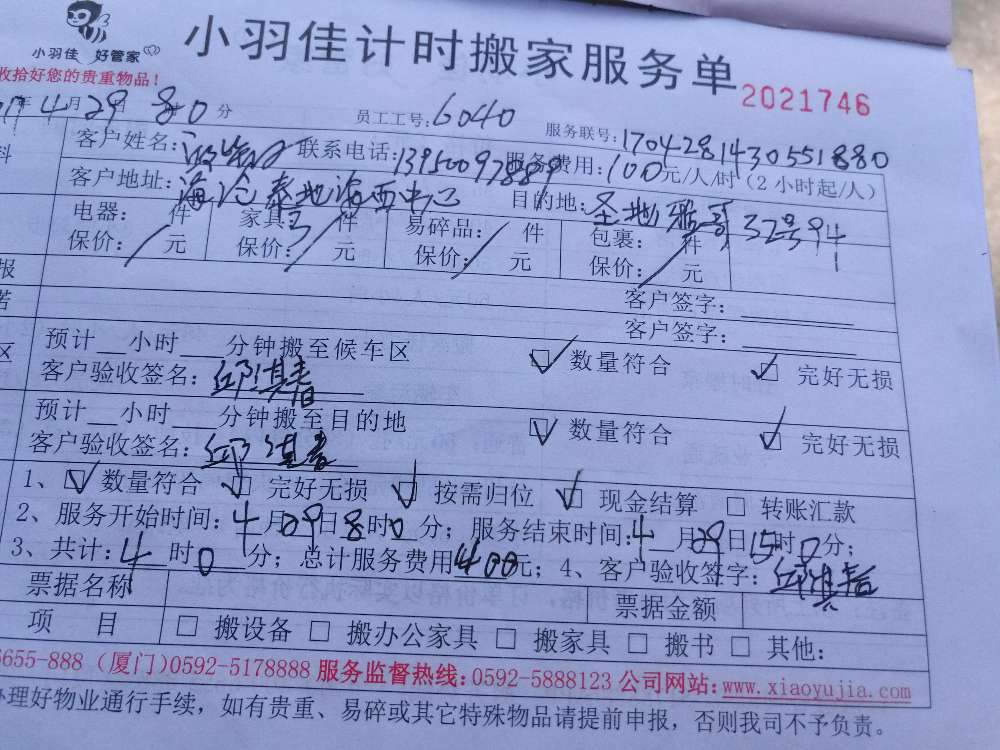 小羽佳 好管家
小羽佳计时搬家服务单
2021746
收拾好您的贵重物品!
年4月29日 8时0分 员工工号:6040 服务联号:1704281430551880
客户姓名: 联系电话:13950097889 服务费用:100元/人/时(2小时起/人)
客户地址:海沧泰地海西中心 目的地:圣地雅哥32号94
电器: 件 家具: 件 易碎品: 件 包裹: 件
保价: 元 保价: 元 保价: 元 保价: 元
报 客户签字:
客户签字:
预计 小时 分钟搬至候车区 数量符合 完好无损
区 客户验收签名:邱淇春
预计 小时 分钟搬至目的地 数量符合 完好无损
客户验收签名:邱淇春
1、 数量符合 完好无损 按需归位 现金结算 转账汇款
2、服务开始时间:4月29日8时0分;服务结束时间:4月29日15时0分;
3、共计:4时0分;总计服务费用400元;4、客户验收签字:邱淇春
票据名称 票据金额
项 目 搬设备 搬办公家具 搬家具 搬书 其他:
5655-888 (厦门)0592-5178888 服务监督热线:0592-5888123 公司网站:www.xiaoyujia.com
办理好物业通行手续,如有贵重、易碎或其它特殊物品请提前申报,否则我司不予负责。